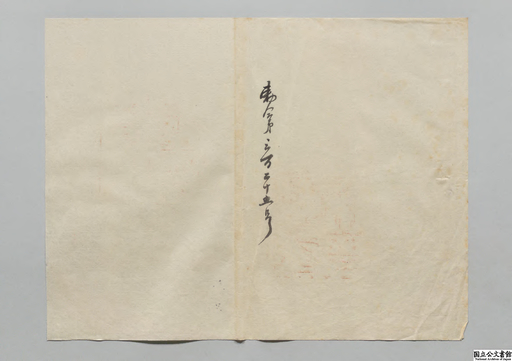 勅令第三百二十五号
国立公文書館
National Archives of Japan